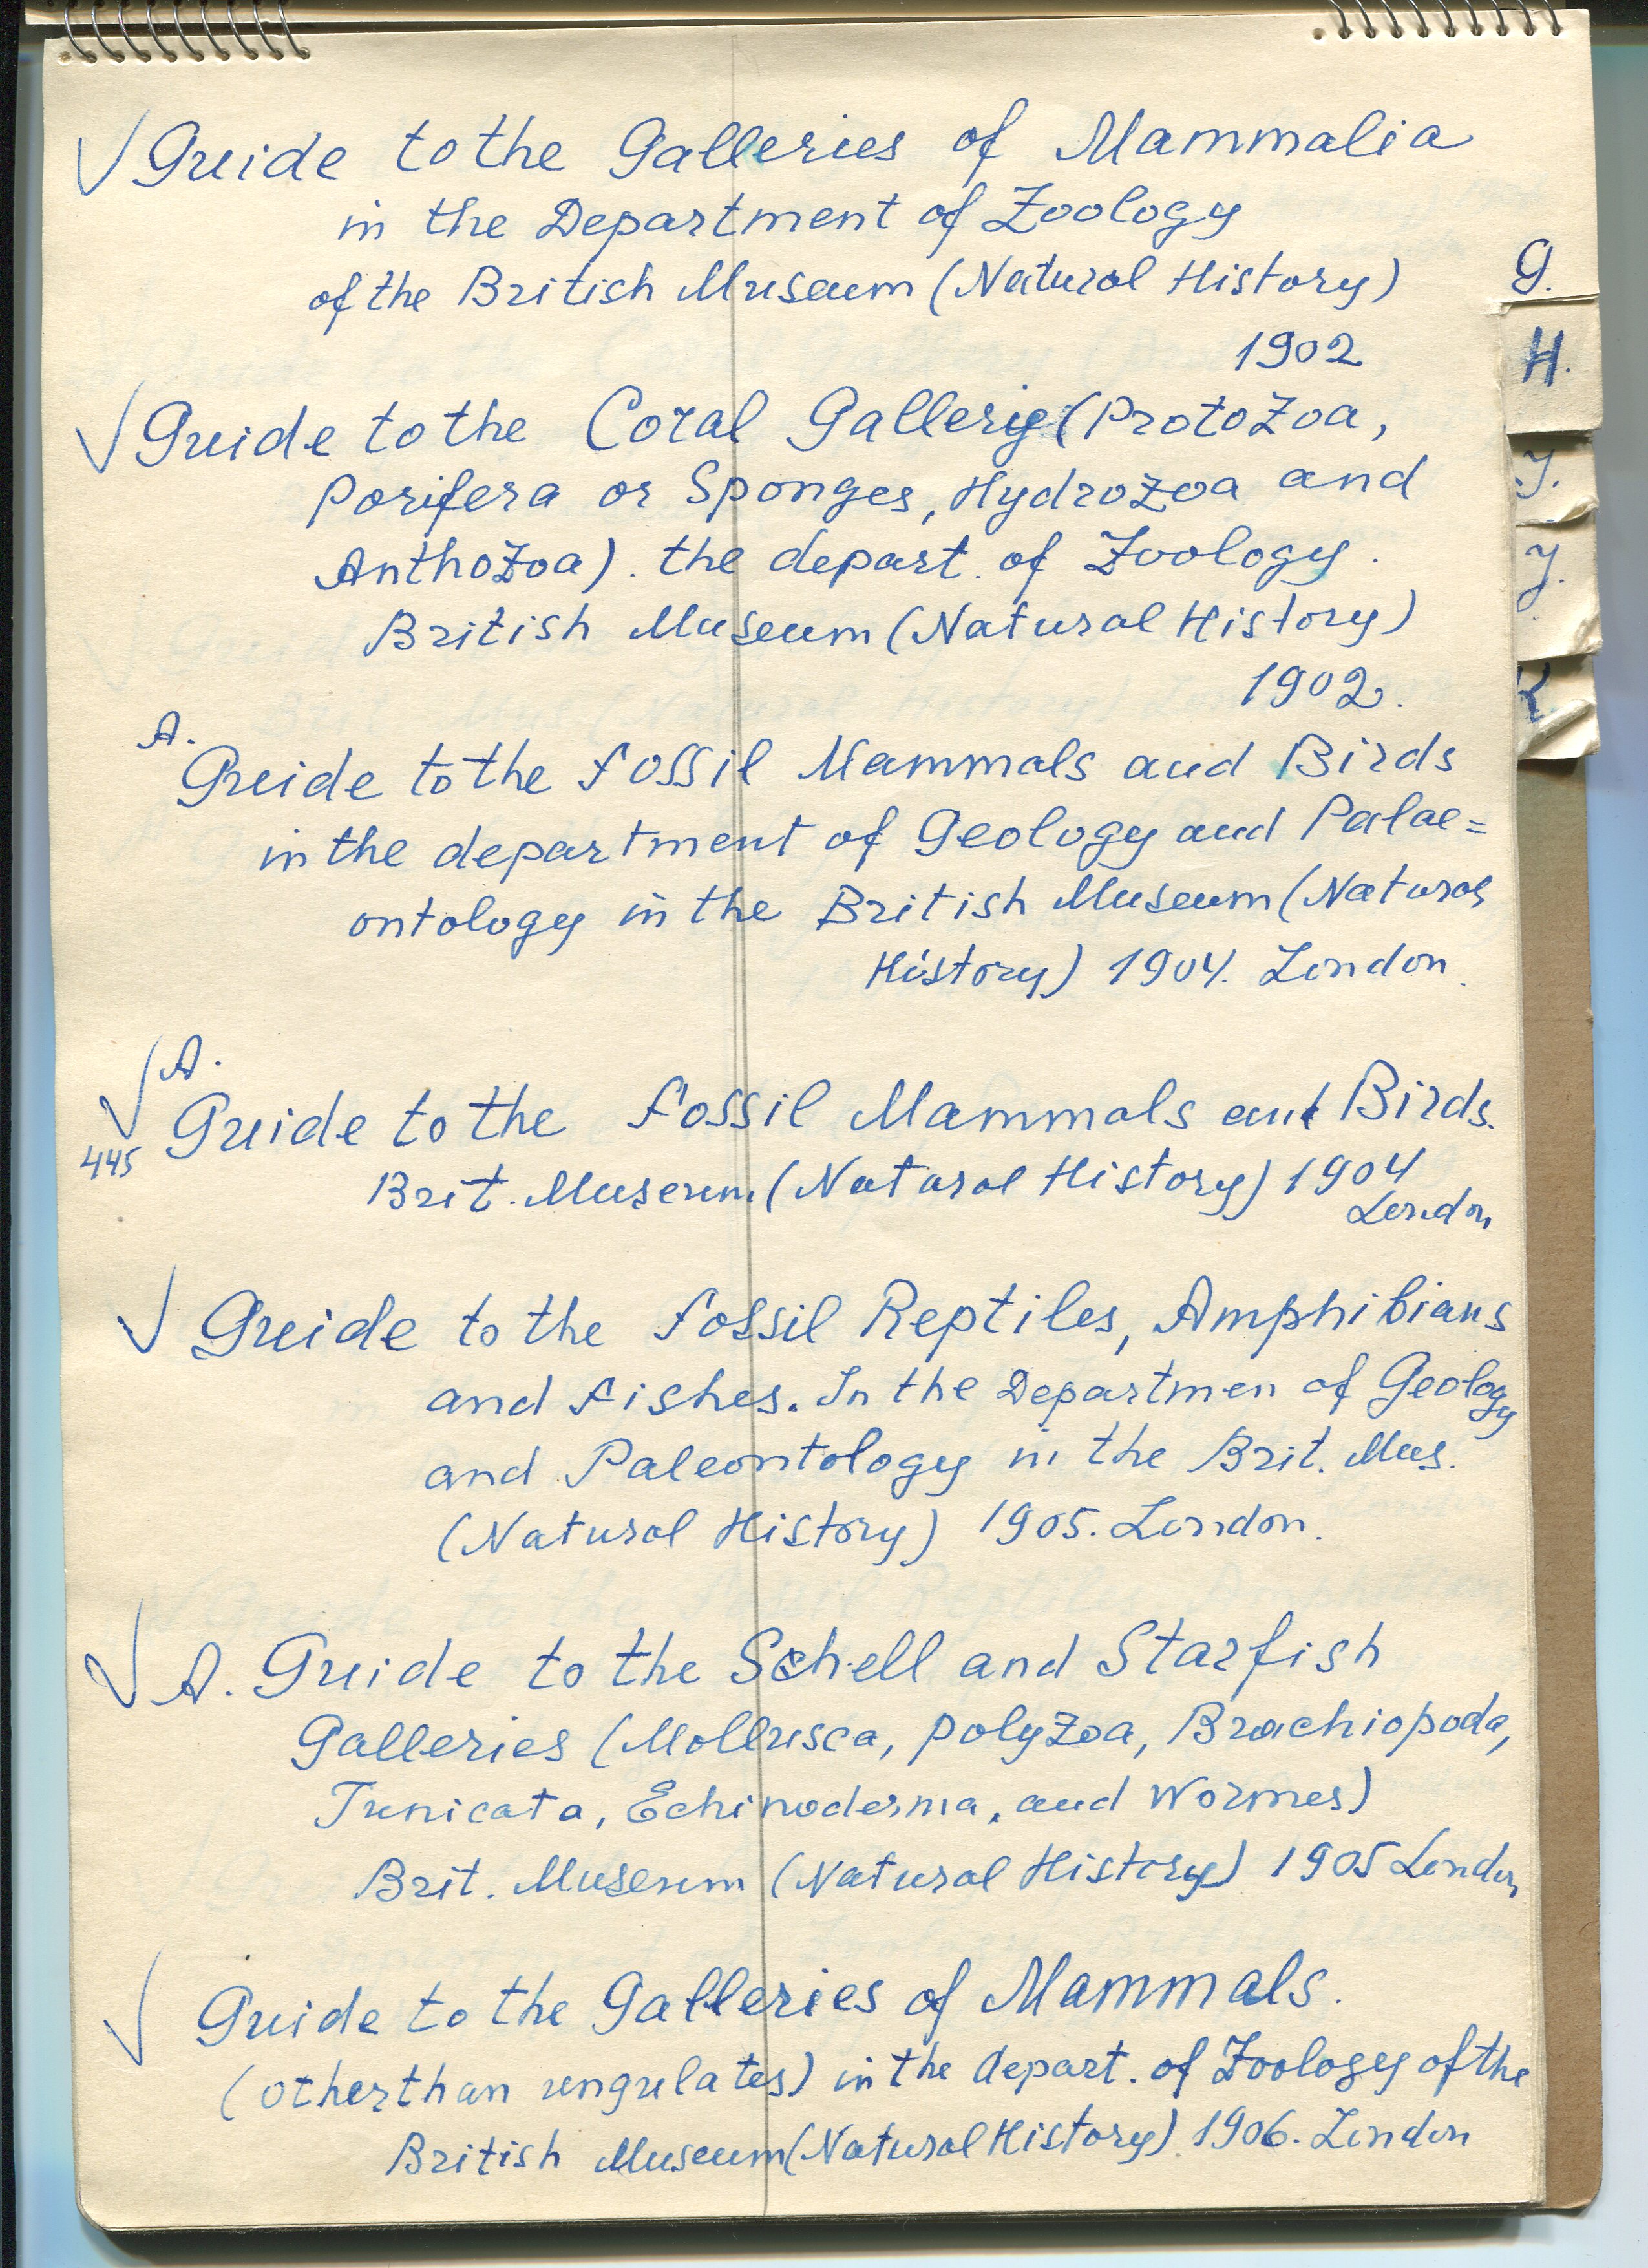 √ Guide to the Galleries of Mammalia
in the Department of Zoology
of the British Museum (Natural History)
1902
√ Guide to the Coral Gallery (Protozoa,
Porifera or Sponges, Hydrozoa and
Anthozoa). the depart. of Zoology.
British Museum (Natural History)
1902.
A.
Guide to the Fossil Mammals and Birds
in the department of Geology and Palae=
ontology in the British Museum (Natural
History) 1904. London.
√ A.
Guide to the Fossil Mammals and Birds.
445
Brit. Museum (Natural History) 1904
London
√ Guide to the Fossil Reptiles, Amphibians
and Fishes. In the Departmen of Geology
and Paleontology in the Brit. Mus.
(Natural History) 1905. London.
√ A. Guide to the Schell and Starfish
Galleries (Mollusca, Polyzoa, Brachiopoda,
Tunicata, Echinoderma, and Wormes)
Brit. Museum (Natural History) 1905 London
√ Guide to the Galleries of Mammals.
(other than ungulates) in the depart. of Zoology of the
British Museum (Natural History) 1906. London
G.
H.
I.
J.
K.